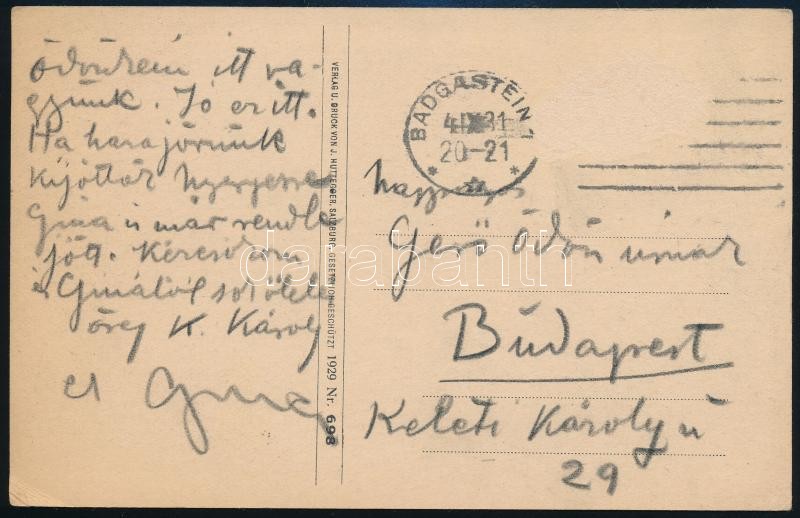 Ödönkém itt va-
gyunk. Jó ez itt.
Ha hazajövünk
kijöttök
Gina is már rendbe
jött. Kézcsókom
és Ginától sok ölelés
öreg K. Károly
és Gina
VERLAG U. DRUCK VON J. HUTTEGGER, SALZBURG. GESETZLICH GESCHÜTZT 1929 Nr. 698
BADGASTEIN 1
4.IX.31
20-21
* *
nagyságos
Gerő Ödön úrnak
Budapest
Keleti Károly u
29
darabanth